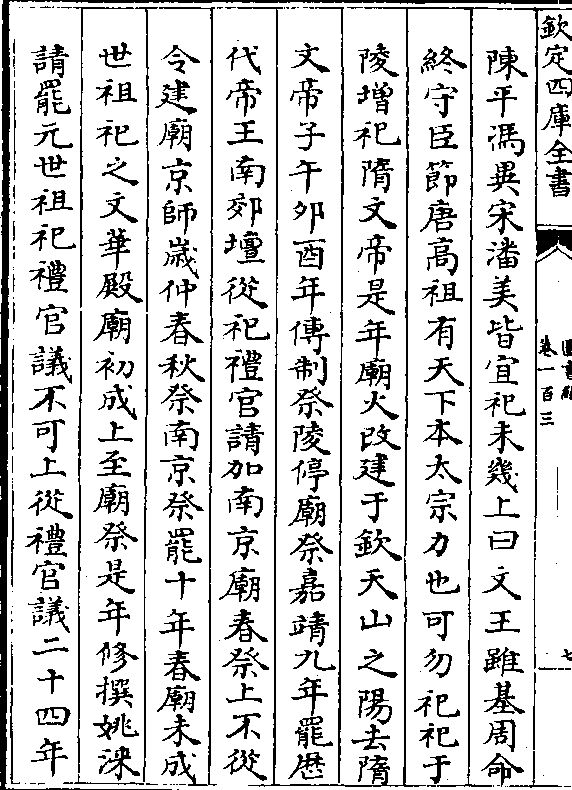 欽定四庫全書
圖書編
卷一百三
七
陳平馮異宋潘美皆宜祀未幾上曰文王雖基周命
終守臣節唐高祖有天下本太宗力也可勿祀祀于
陵增祀隋文帝是年廟火改建于欽天山之陽去隋
文帝子午卯酉年傳制祭陵停廟祭嘉靖九年罷厯
代帝王南郊壇從祀禮官請加南京廟春祭上不從
令建廟京師嵗仲春秋祭南京祭罷十年春廟未成
世祖祀之文華殿廟初成上至廟祭是年修撰姚淶
請罷元世祖祀禮官議不可上從禮官議二十四年